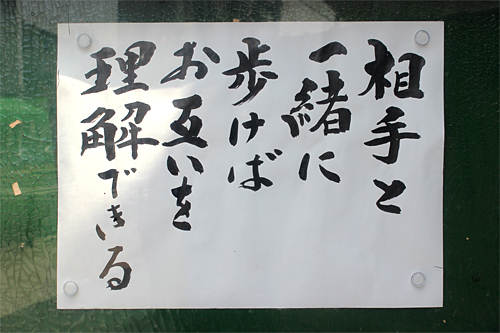 相手と
一緒に
歩けば
お互いを
理解できる